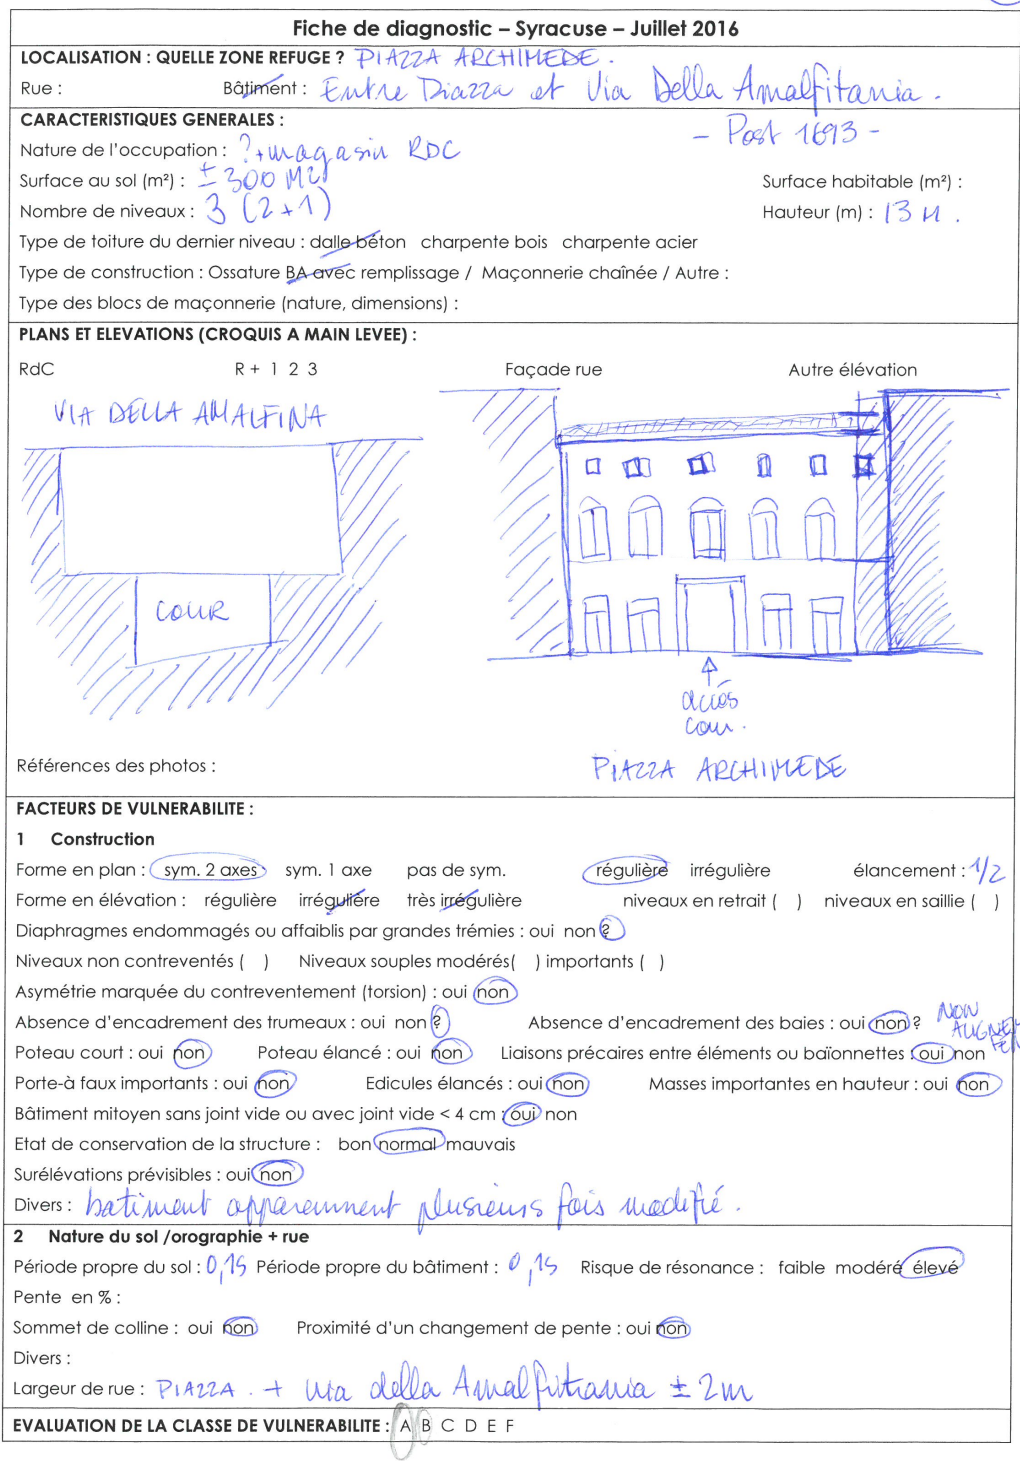 Fiche de diagnostic – Syracuse – Juillet 2016
LOCALISATION : QUELLE ZONE REFUGE ? PIAZZA ARCHIMEDE.
Rue : Bâtiment : Entre Piazza et Via Della Amalfitania.
CARACTERISTIQUES GENERALES : - Post 1693 -
Nature de l'occupation : ? + magasin RDC
Surface au sol (m²) : ± 300 M2 Surface habitable (m²) :
Nombre de niveaux : 3 (2+1) Hauteur (m) : 13 M.
Type de toiture du dernier niveau : dalle béton charpente bois charpente acier
Type de construction : Ossature BA avec remplissage / Maçonnerie chaînée / Autre :
Type des blocs de maçonnerie (nature, dimensions) :
PLANS ET ELEVATIONS (CROQUIS A MAIN LEVEE) :
RdC R + 1 2 3 Façade rue Autre élévation
VIA DELLA AMALFINA
COUR
accès
cour.
Références des photos : PIAZZA ARCHIMEDE
FACTEURS DE VULNERABILITE :
1 Construction
Forme en plan : sym. 2 axes sym. 1 axe pas de sym. régulière irrégulière élancement : 1/2
Forme en élévation : régulière irrégulière très irrégulière niveaux en retrait ( ) niveaux en saillie ( )
Diaphragmes endommagés ou affaiblis par grandes trémies : oui non ?
Niveaux non contreventés ( ) Niveaux souples modérés( ) importants ( )
Asymétrie marquée du contreventement (torsion) : oui non
Absence d'encadrement des trumeaux : oui non ? Absence d'encadrement des baies : oui non ? NON
Poteau court : oui non Poteau élancé : oui non Liaisons précaires entre éléments ou baïonnettes : oui non
Porte-à faux importants : oui non Edicules élancés : oui non Masses importantes en hauteur : oui non
Bâtiment mitoyen sans joint vide ou avec joint vide < 4 cm : oui non
Etat de conservation de la structure : bon normal mauvais
Surélévations prévisibles : oui non
Divers : batiment apparemment plusieurs fois modifié.
2 Nature du sol /orographie + rue
Période propre du sol : 0,1s Période propre du bâtiment : 0,1s Risque de résonance : faible modéré élevé
Pente en % :
Sommet de colline : oui non Proximité d'un changement de pente : oui non
Divers :
Largeur de rue : PIAZZA. + via della Amalfitrania ± 2m
EVALUATION DE LA CLASSE DE VULNERABILITE : A B C D E F